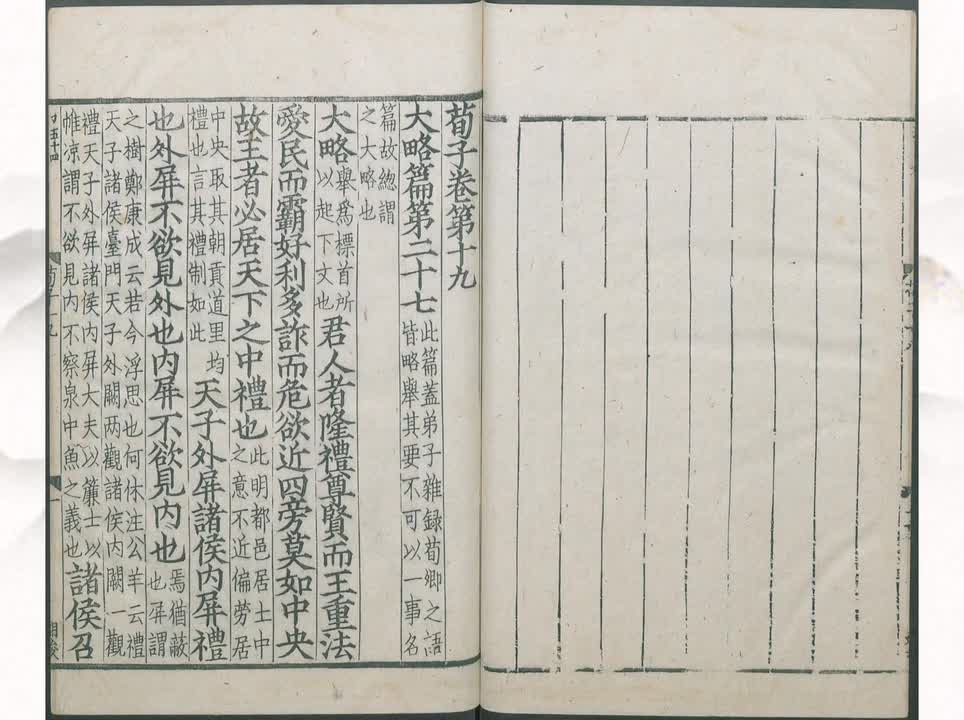 荀子卷第十九
大略篇第二十七此篇蓋弟子雜録荀卿之語
皆略舉其要不可以一事名
篇故總謂
之大略也
大略舉爲標首所
以起下文也君人者隆禮尊賢而王重法
愛民而霸好利多詐而危欲近四旁莫如中央
故王者必居天下之中禮也此明都邑居土中
之意不近偏勞居
中央取其朝貢道里均
禮也言其禮制如此天子外屏諸侯内屏禮
也外屏不欲見外也内屏不欲見内也焉猶蔽
也屏謂
之樹鄭康成云若今浮思也何休注公羊云禮
天子諸侯臺門天子外闕两觀諸侯内闕一觀
禮天子外屏諸侯内屏大夫以簾士以
帷凉謂不欲見内不察泉中魚之義也諸侯召